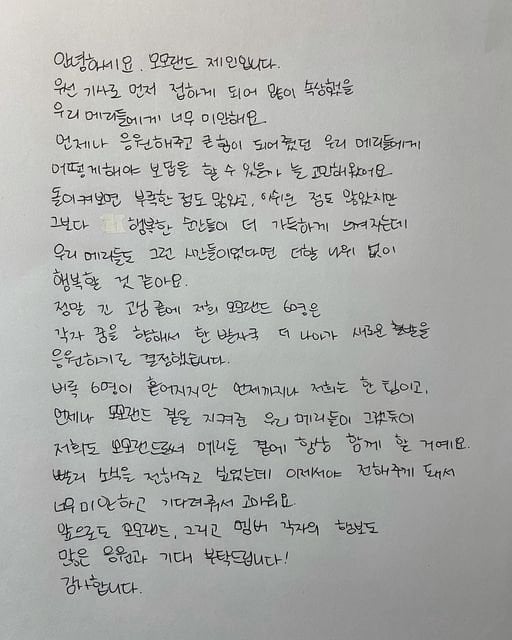 안녕하세요. 모모랜드 제인입니다.
우선 기사로 먼저 접하게 되어 많이 속상했을
우리 메리들에게 너무 미안해요.
언제나 응원해주고 큰 힘이 되어줬던 우리 메리들에게
어떻게해야 보답을 할 수 있을까 늘 고민해왔어요.
돌이켜보면 부족한 점도 많았고, 아쉬운 점도 많았지만
그보다 행복한 순간들이 더 가득하게 느껴지는데
우리 메리들도 그런 시간들이었다면 더할 나위 없이
행복할 것 같아요.
정말 긴 고심 끝에 저희 모모랜드 6명은
각자 꿈을 향해서 한 발자국 더 나아가 새로운 출발을
응원하기로 결정했습니다.
비록 6명이 흩어지지만 언제까지나 저희는 한 팀이고,
언제나 모모랜드 곁을 지켜준 우리 메리들이 그랬듯이
저희도 모모랜드로써 메리들 곁에 항상 함께 할 거예요.
빨리 소식을 전해주고 싶었는데 이제서야 전해주게 돼서
너무 미안하고 기다려줘서 고마워요.
앞으로도 모모랜드, 그리고 멤버 각자의 행보도
많은 응원과 기대 부탁드립니다!
감사합니다.